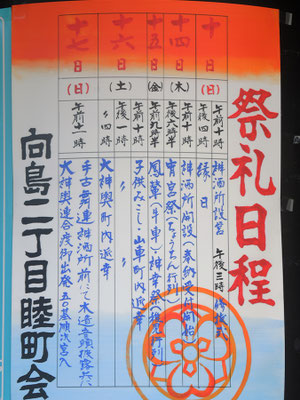 祭礼日程
十日(日)
午前十時 神酒所設営 午後三時 修祓式
午後四時 縁日
十四日(木)
午前十時 神酒所開設(奉納受付開始)
午後六時 宵宮祭(ちょうちん行列)
十五日(金)
午前九時半 鳳輦(牛車)神幸祭(供奉行列)
十六日(土)
午前十時 子供みこし・山車町内巡幸
午後一時 〃
〃四時 大神輿町内巡幸
十七日(日)
午前十一時
手古舞連神酒所前にて木遣音頭披露
大神輿連合渡御出発 五〇基順次宮入
向島二丁目睦町会